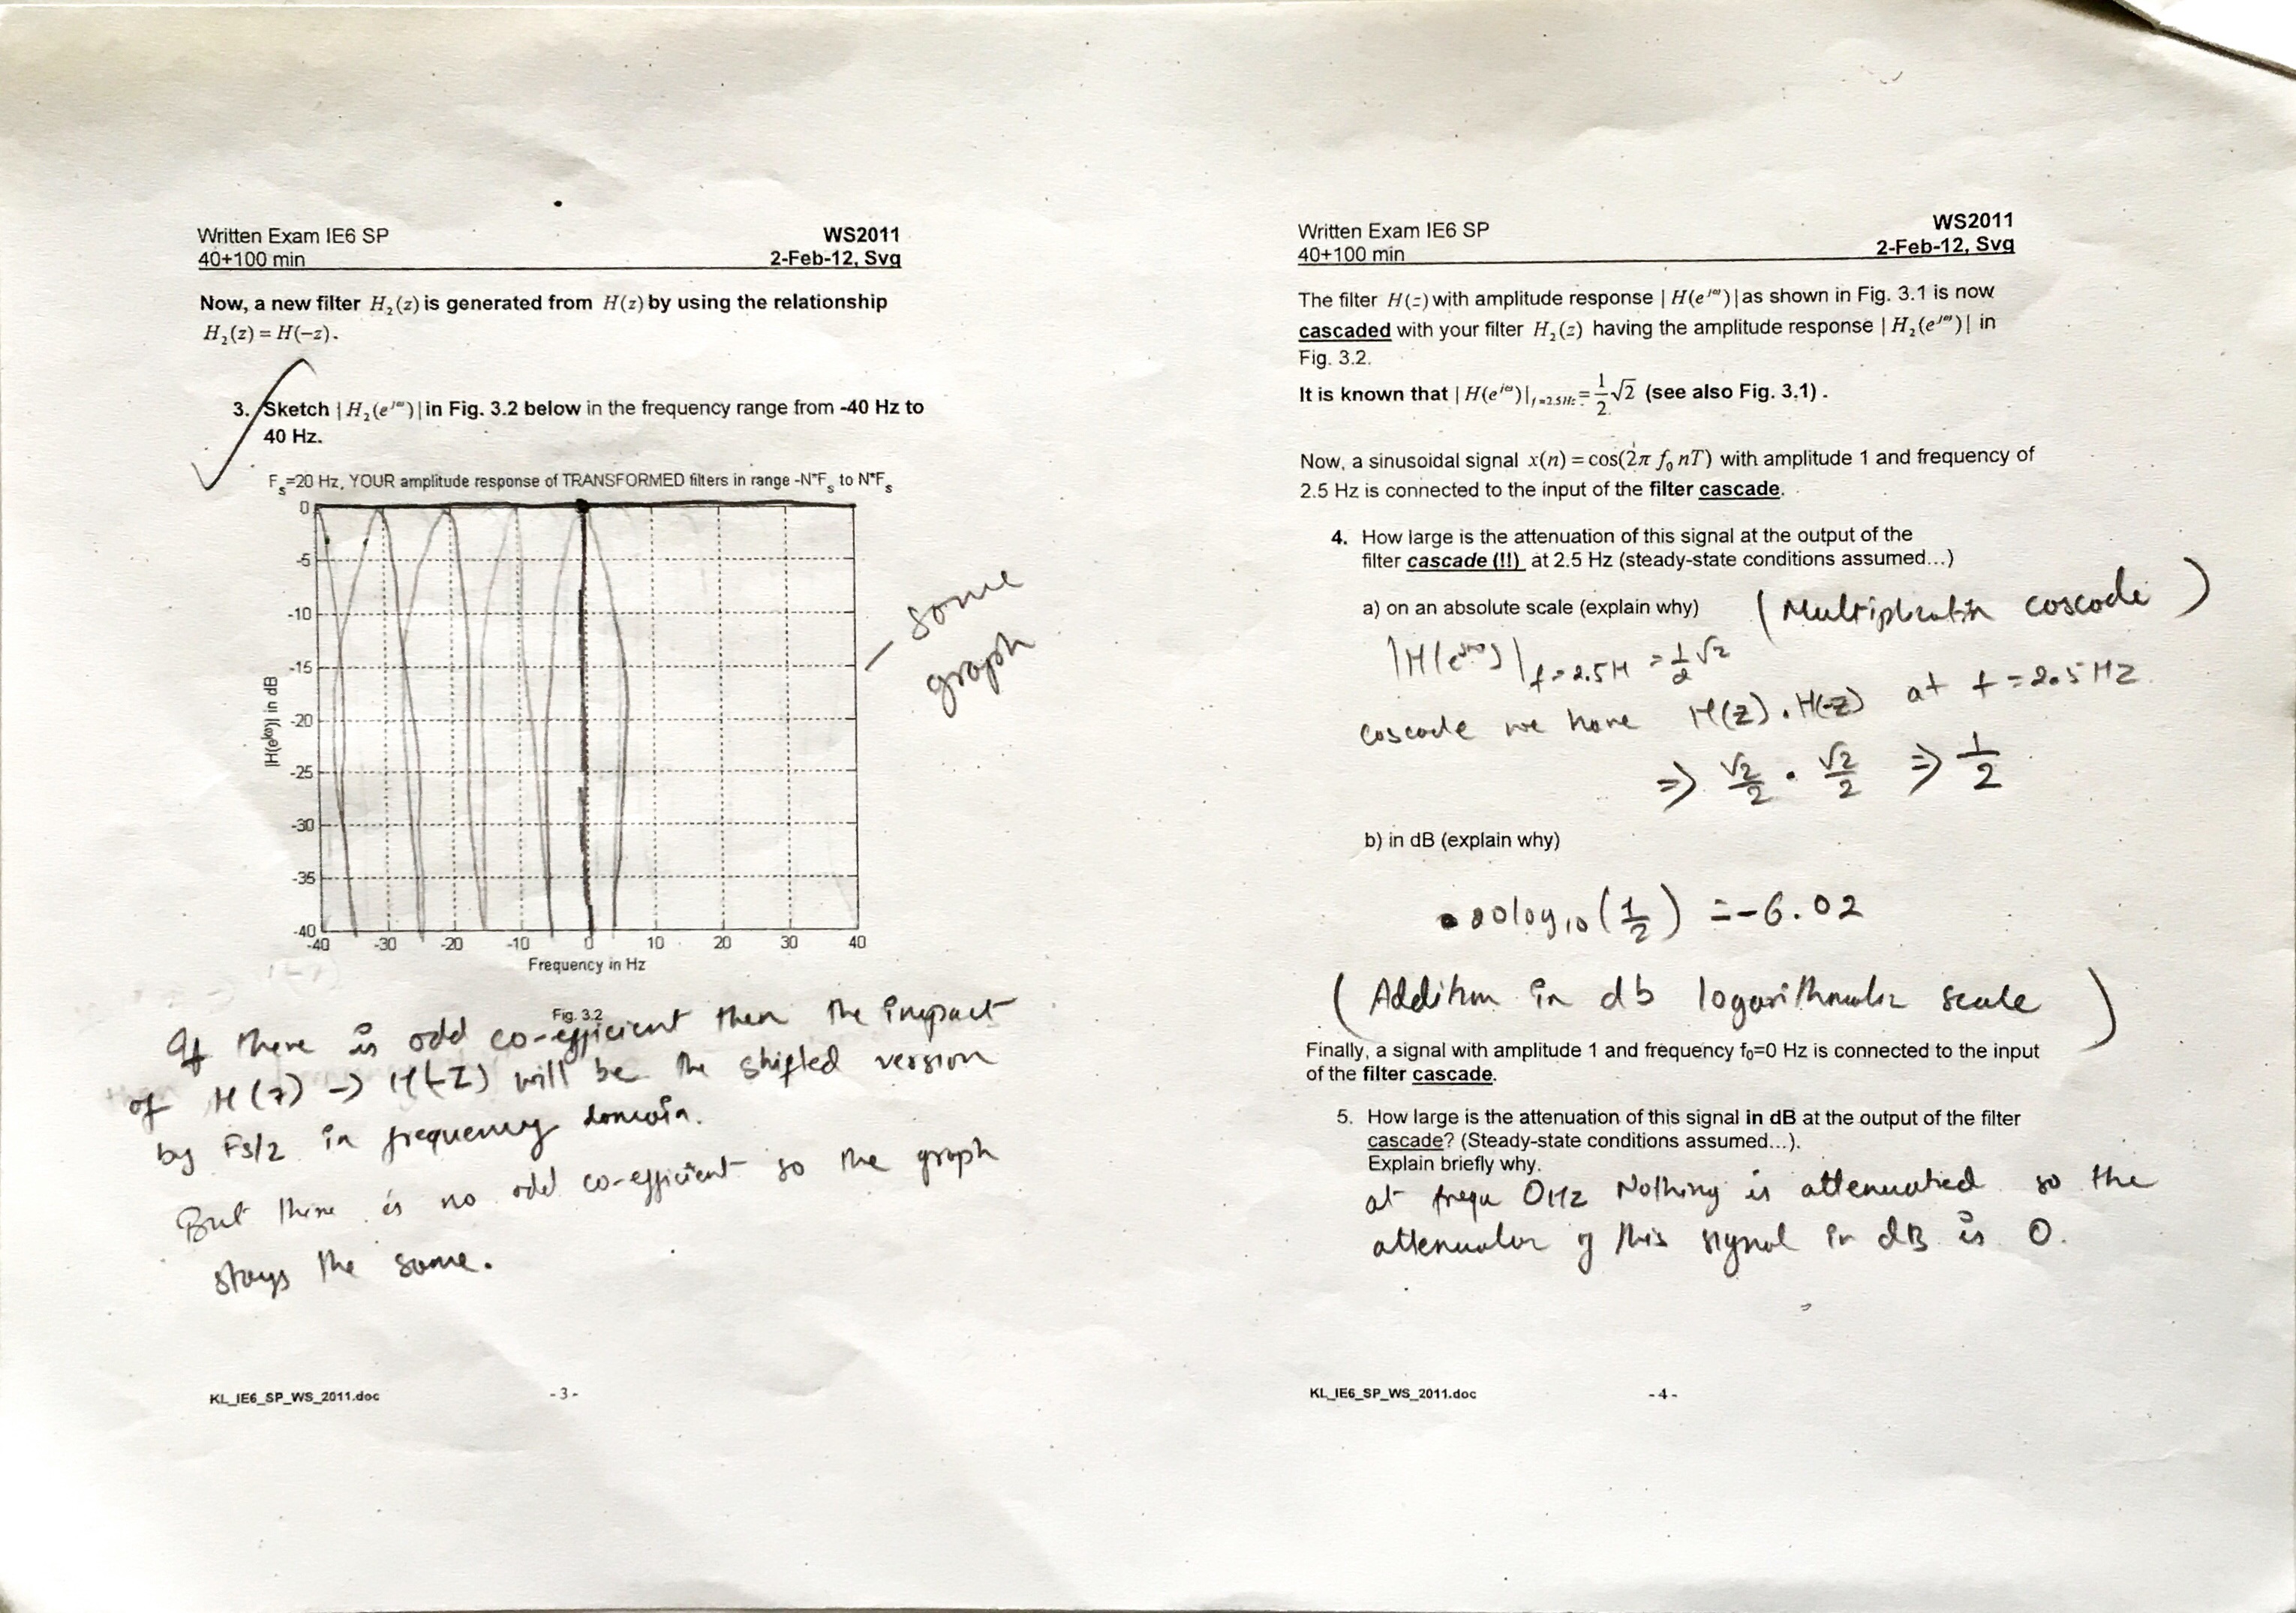 Written Exam IE6 SP WS2011
40+100 min 2-Feb-12, Svg
Now, a new filter H₂(z) is generated from H(z) by using the relationship
H₂(z) = H(−z).
3. Sketch | H₂(e^jω) | in Fig. 3.2 below in the frequency range from -40 Hz to
40 Hz.
Fs=20 Hz, YOUR amplitude response of TRANSFORMED filters in range -N*Fs to N*Fs
|H(e^jω)| in dB
0
-5
-10
-15
-20
-25
-30
-35
-40
-40 -30 -20 -10 0 10 20 30 40
Frequency in Hz
– some
graph
Fig. 3.2
If there is odd co-efficient then the impact
of H(z) → H(-z) will be the shifted version
by Fs/2 in frequency domain.
But there is no odd co-efficient so the graph
stays the same.
KL_IE6_SP_WS_2011.doc - 3 -
Written Exam IE6 SP WS2011
40+100 min 2-Feb-12, Svg
The filter H(z) with amplitude response | H(e^jω) | as shown in Fig. 3.1 is now
cascaded with your filter H₂(z) having the amplitude response | H₂(e^jω) | in
Fig. 3.2.
It is known that | H(e^jω) |f=2.5Hz = 1/2 √2 (see also Fig. 3.1) .
Now, a sinusoidal signal x(n) = cos(2π f₀ nT) with amplitude 1 and frequency of
2.5 Hz is connected to the input of the filter cascade.
4. How large is the attenuation of this signal at the output of the
filter cascade (!!) at 2.5 Hz (steady-state conditions assumed...)
a) on an absolute scale (explain why) (Multiplicatin cascade)
|H(e^jω)|f=2.5H = 1/2 √2
cascade we have H(z) . H(-z) at f = 2.5 HZ
⇒ √2/2 . √2/2 ⇒ 1/2
b) in dB (explain why)
20log₁₀(1/2) = -6.02
(Addition in db logarithmic scale)
Finally, a signal with amplitude 1 and frequency f₀=0 Hz is connected to the input
of the filter cascade.
5. How large is the attenuation of this signal in dB at the output of the filter
cascade? (Steady-state conditions assumed...).
Explain briefly why.
at frequ 0Hz Nothing is attenuated so the
attenuation of this signal in dB is 0.
KL_IE6_SP_WS_2011.doc - 4 -